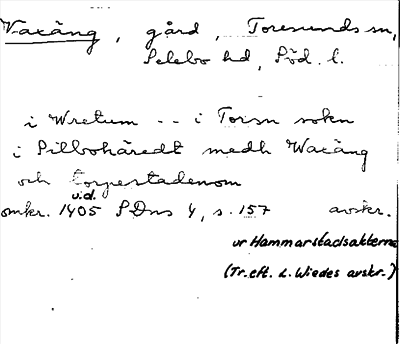 Vaxäng, gård, Toresunds sn,
Selebo hd, Söd. l.
i Wretum -- i Toısn sokn
i Silbohäredt medh Waxäng
och torpestadenom
u.d.
omkr. 1405 SDns 4, s. 157 avskr.
ur Hammarstadsakterna
(Tr. eft. L. Wiedes avskr.)